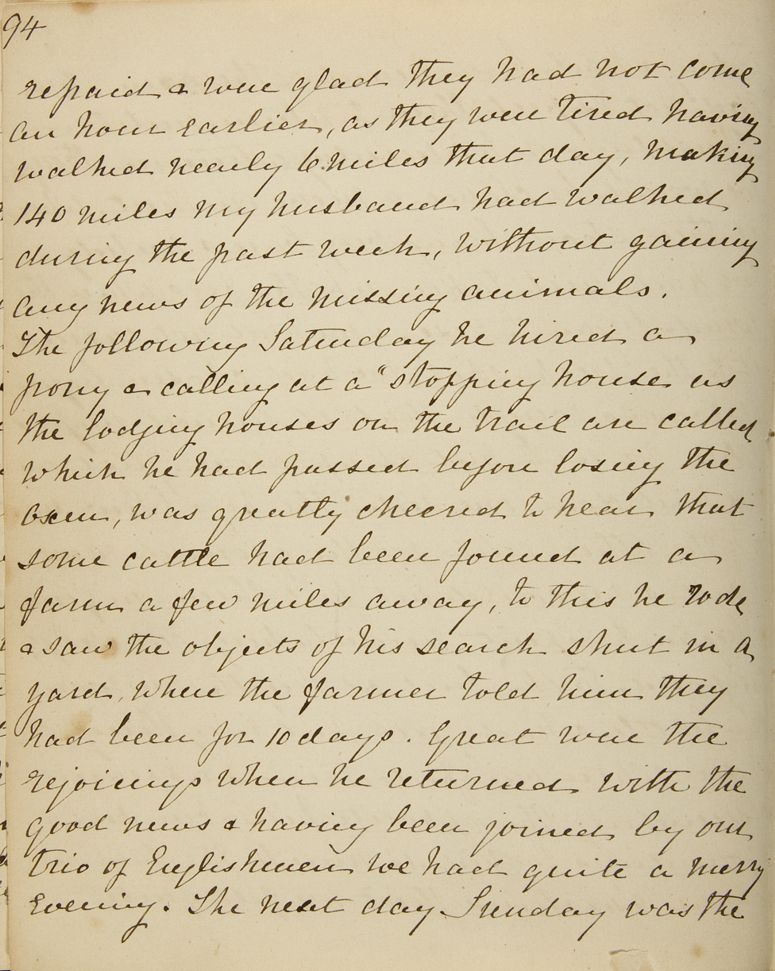 94
repaid & were glad they had not come
an hour earlier, as they were tired having
walked nearly 6 miles that day, making
140 miles my husband had walked
during the past week, without gaining
any news of the missing animals.
The following Saturday he hired a
pony & calling at a "stopping house as
the lodging houses on the trail are called
which he had passed before losing the
oxen, was greatly cheered to hear that
some cattle had been found at a
farm a few miles away, to this he rode
& saw the objects of his search shut in a
yard, where the farmer told him they
had been for 10 days. Great were the
rejoicings when he returned with the
good news & having been joined by our
trio of Englishmen we had quite a merry
evening. The next day Sunday was the